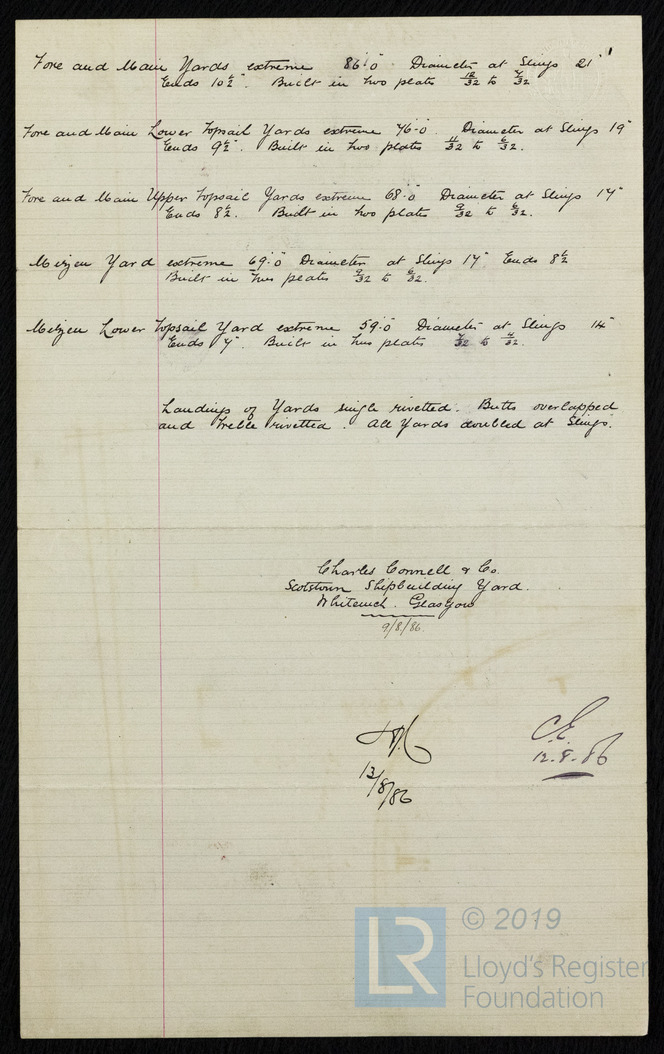 Fore and Main Yards extreme 86'.0" Diameter at Slings 21"
Ends 10½". Built in two plates 12/32 to 7/32
Fore and Main Lower Topsail Yards extreme 76'.0. Diameter at Slings 19"
Ends 9½". Built in two plates 11/32 to 6/32.
Fore and Main Upper Topsail Yards extreme 68'.0 Diameter at Slings 17"
Ends 8½. Built in two plates 9/32 to 6/32.
Mizen Yard extreme 69'.0" Diameter at Slings 17" Ends 8½
Built in two plates 9/32 to 6/32.
Mizen Lower Topsail Yard extreme 59'.0 Diameter at Slings 14"
Ends 7". Built in two plates 7/32 to 4/32.
Landings of Yards single rivetted. Butts overlapped
and treble rivetted. All Yards doubled at Slings.
Charles Connell & Co.
Scotstoun Shipbuilding Yard.
Whiteinch. Glasgow
9/8/86.
13/8/86
C.E.
12.8.86
LR
© 2019
Lloyd's Register
Foundation